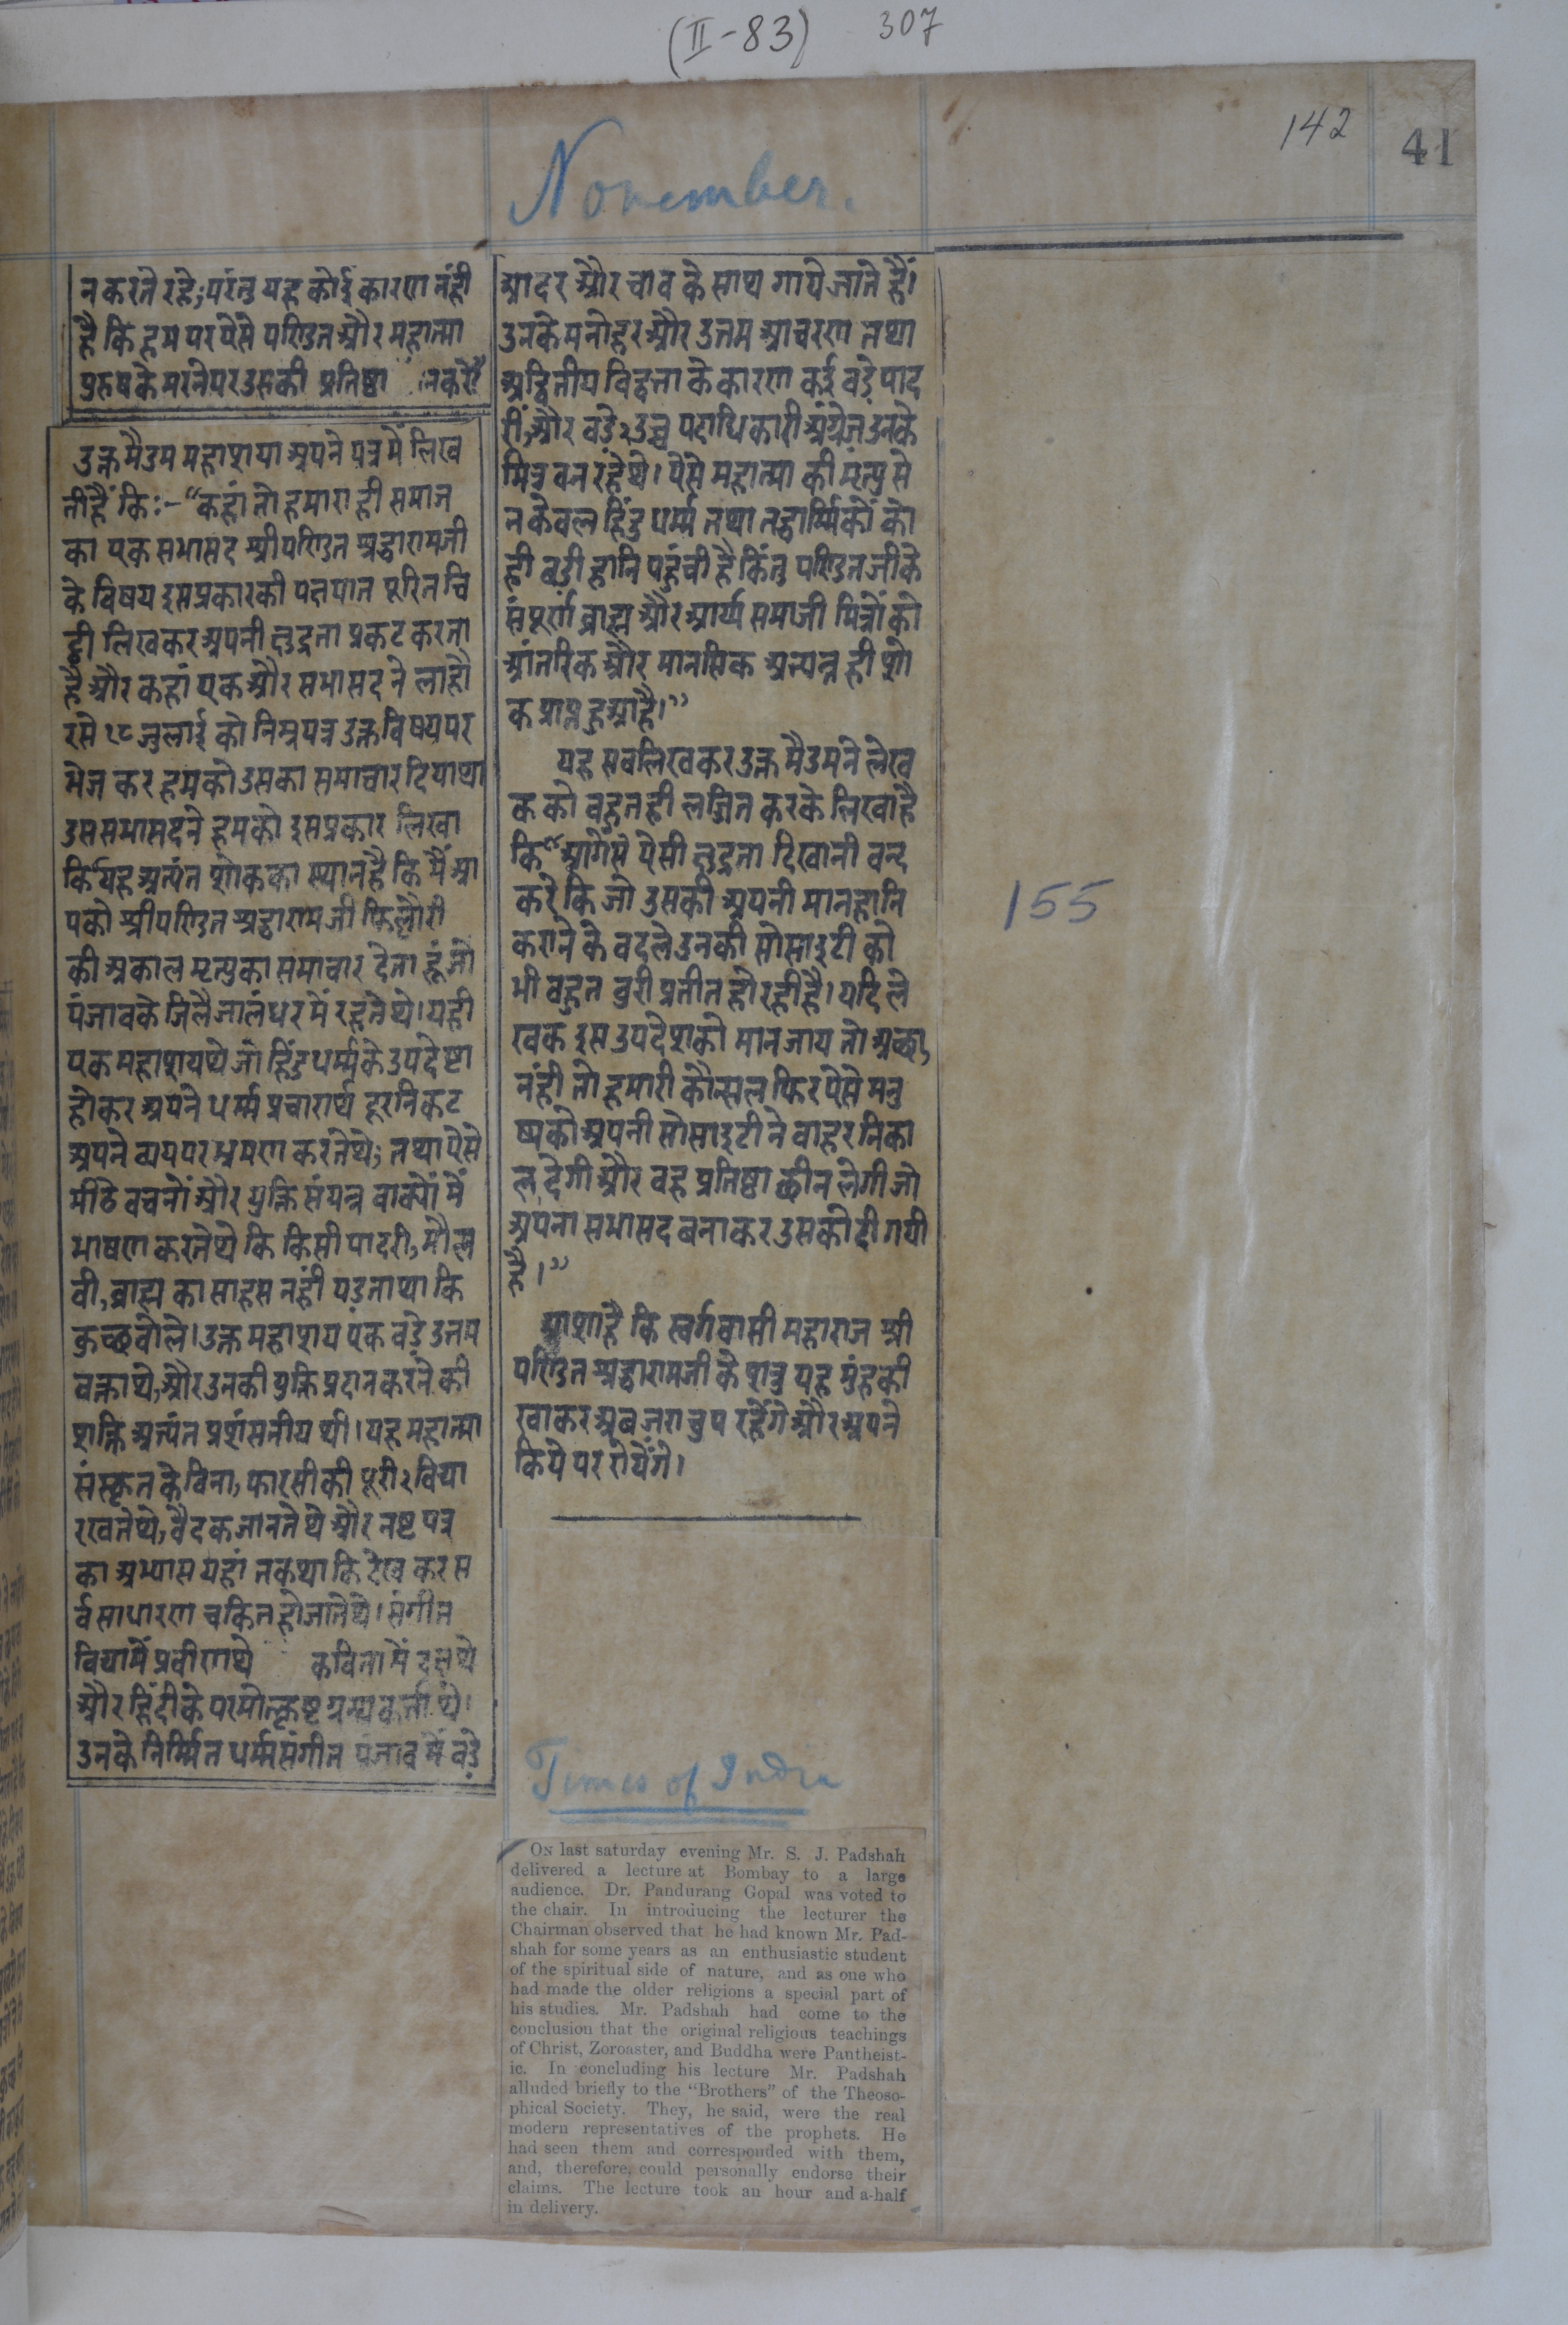 (II-83) 307
142
41
November.
न करते रहे; परंतु यह कोई कारण नंही
है कि हम पर ऐसे पण्डित और महात्मा
पुरुष के मरने पर उसकी प्रतिष्ठा न करें"
उक्त मैडम महाशया अपने पत्र में लिख
तीं हैं कि:- "कहां तो हमारा ही समाज
का एक सभासद श्री पण्डित श्रद्धारामजी
के विषय इस प्रकार की पक्षपात पूरित चि
ट्ठी लिखकर अपनी क्षुद्रता प्रकट करता
है और कहां एक और सभासद ने लाहो
र से १८ जुलाई को निम्न पत्र उक्त विषय पर
भेज कर हमको उसका समाचार दिया था
उस सभासदने हमको इस प्रकार लिखा
कि यह अत्यंत शोक का स्थान है कि मैं आ
पको श्री पण्डित श्रद्धारामजी फिल्लौरी
की अकाल मृत्यु का समाचार देता हूं जो
पंजाब के जिलै जालंधर में रहते थे। यही
एक महाशय थे जो हिंदु धर्म्म के उपदेष्टा
होकर अपने धर्म्म प्रचारार्थ दूर निकट
अपने व्यय पर भ्रमण करते थे; तथा ऐसे
मीठे वचनों और युक्ति संपन्न वाक्यों में
भाषण करते थे कि किसी पादरी, मौल
वी, ब्राह्म का साहस नंहीं पडता था कि
कुच्छ बोले। उक्त महाशय एक बडे़ उत्तम
वक्ता थे, और उनकी युक्ति प्रदान करने की
शक्ति अत्यंत प्रशंसनीय थी। यह महात्मा
संस्कृत के विना, फारसी की पूरी २ विद्या
रखते थे, वैदक जानते थे और नष्ट पत्र
का अभ्यास यहां तक था कि देख कर स
र्व साधारण चकित हो जाते थे। संगीत
विद्या में प्रवीण थे कविता में दक्ष थे
और हिंदी के परमोत्कृष्ट ग्रन्थ कर्त्ता थे।
उनके निर्म्मित धर्म्म संगीत पंजाब में बडे़
आदर और चाव के साथ गाये जाते हैं।
उनके मनोहर और उत्तम आचरण तथा
अद्वितीय विद्वत्ता के कारण कई बडे़ पाद
रीं, और बडे़ २ उच्च पदाधिकारी अंग्रेज उनके
मित्र बन रहे थे। ऐसे महात्मा की मृत्यु से
न केवल हिंदु धर्म्म तथा तद्धार्म्मिकों को
ही बडी हानि पहुंची है किंतु पण्डित जी के
संपूर्ण ब्राह्म और आर्य्य समाजी मित्रों को
आंतरिक और मानसिक अत्यन्त ही शो
क प्राप्त हुआ है।"
यह सब लिखकर उक्त मैडम ने लेख
क को बहुत ही लज्जित करके लिखा है
कि "आगे से ऐसी क्षुद्रता दिखानी बन्द
करे कि जो उसकी अपनी मानहानि
कराने के बदले उनकी सोसाइटी को
भी बहुत बुरी प्रतीत हो रही है। यदि ले
खक इस उपदेश को मान जाय तो अच्छा,
नंही तो हमारी कौन्सल फिर ऐसे मनु
ष्य को अपनी सोसाइटी ने बाहर निका
ल देगी और वह प्रतिष्ठा छीन लेगी जो
अपना सभासद बनाकर उसको दी गयी
है।"
आशा है कि स्वर्गवासी महाराज श्री
पण्डित श्रद्धारामजी के शत्रु यह मुंह की
खाकर अब जरा चुप रहेंगे और अपने
किये पर रोयेंगे।
155
Times of India
ON last saturday evening Mr. S. J. Padshah
delivered a lecture at Bombay to a large
audience. Dr. Pandurang Gopal was voted to
the chair. In introducing the lecturer the
Chairman observed that he had known Mr. Pad-
shah for some years as an enthusiastic student
of the spiritual side of nature, and as one who
had made the older religions a special part of
his studies. Mr. Padshah had come to the
conclusion that the original religious teachings
of Christ, Zoroaster, and Buddha were Pantheist-
ic. In concluding his lecture Mr. Padshah
alluded briefly to the "Brothers" of the Theoso-
phical Society. They, he said, were the real
modern representatives of the prophets. He
had seen them and corresponded with them,
and, therefore, could personally endorse their
claims. The lecture took an hour and a-half
in delivery.